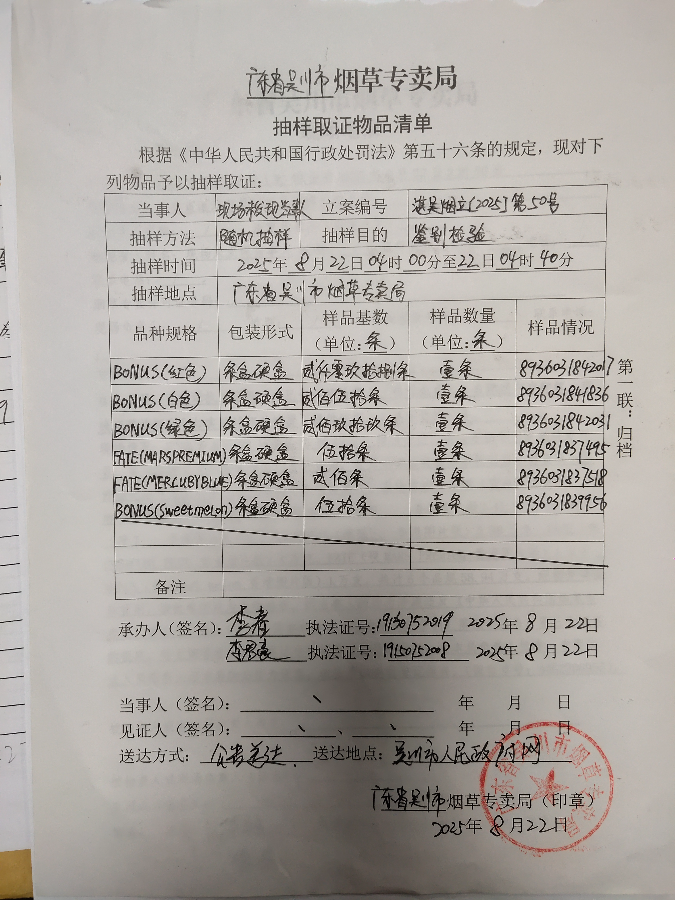 广东省吴川市烟草专卖局
抽样取证物品清单
根据《中华人民共和国行政处罚法》第五十六条的规定，现对下
列物品予以抽样取证：
当事人 立案编号 湛吴烟立[2025]第50号
抽样方法 随机抽样 抽样目的 鉴别检验
抽样时间 2025年8月22日04时00分至22日04时40分
抽样地点 广东省吴川市烟草专卖局
品种规格 包装形式 样品基数（单位：条） 样品数量（单位：条） 样品情况
BONUS(红色) 条盒硬盒 壹条 8936031842017
BONUS(白色) 条盒硬盒 贰佰伍拾条 壹条 8936031841836
BONUS(绿色) 条盒硬盒 贰佰玖拾玖条 壹条 8936031842031
FATE(MARSPREMIUM) 条盒硬盒 伍拾条 壹条 8936031837495
FATE(MERCURYBLUE) 条盒硬盒 贰佰条 壹条 8936031837518
BONUS(Sweetmelon) 条盒硬盒 伍拾条 壹条 8936031839956
第一联：归档
备注
承办人（签名）： 李春 执法证号：19150752019 2025年8月22日
执法证号：19150752008 2025年8月22日
当事人（签名）： 年 月 日
见证人（签名）： 、 年 月 日
送达方式：公告送达 送达地点：吴川市人民政府网
广东省吴川市烟草专卖局（印章）
2025年8月22日
广东省吴川市烟草专卖局